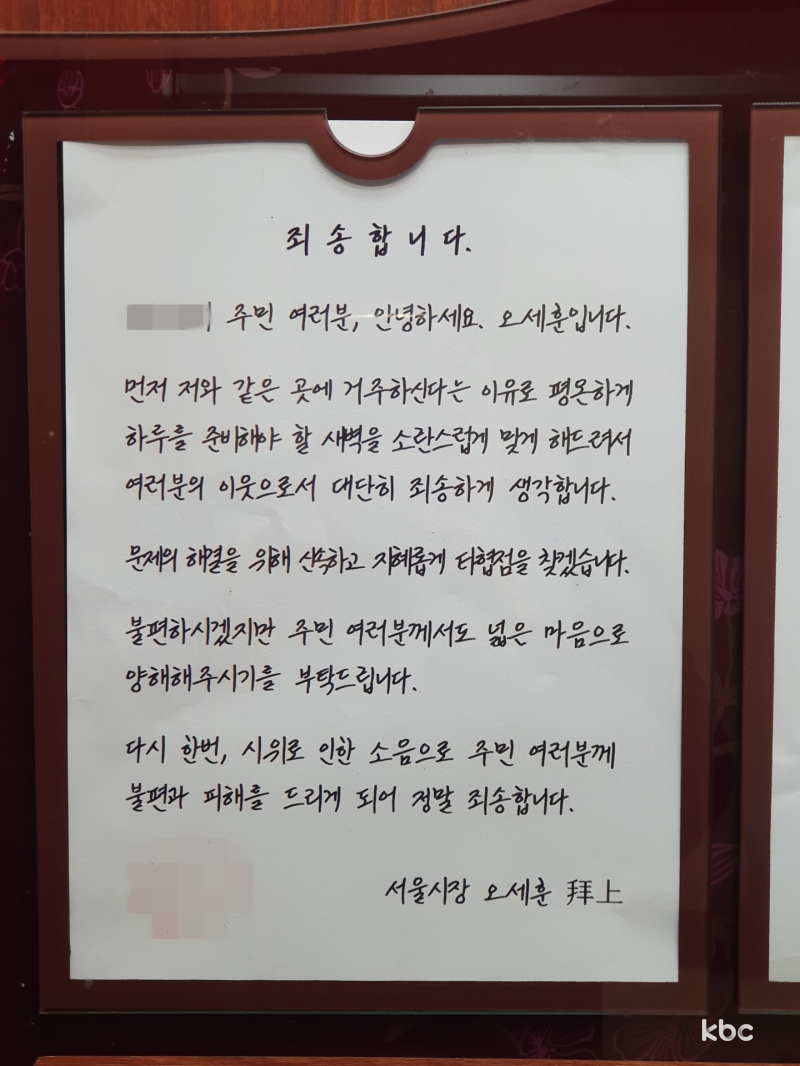 죄송합니다.
주민 여러분, 안녕하세요. 오세훈입니다.
먼저 저와 같은 곳에 거주하신다는 이유로 평온하게
하루를 준비해야 할 새벽을 소란스럽게 맞게 해드려서
여러분의 이웃으로서 대단히 죄송하게 생각합니다.
문제의 해결을 위해 신속하고 지혜롭게 타협점을 찾겠습니다.
불편하시겠지만 주민 여러분께서도 넓은 마음으로
양해해주시기를 부탁드립니다.
다시 한번, 시위로 인한 소음으로 주민 여러분께
불편과 피해를 드리게 되어 정말 죄송합니다.
서울시장 오세훈 拜上
kbc